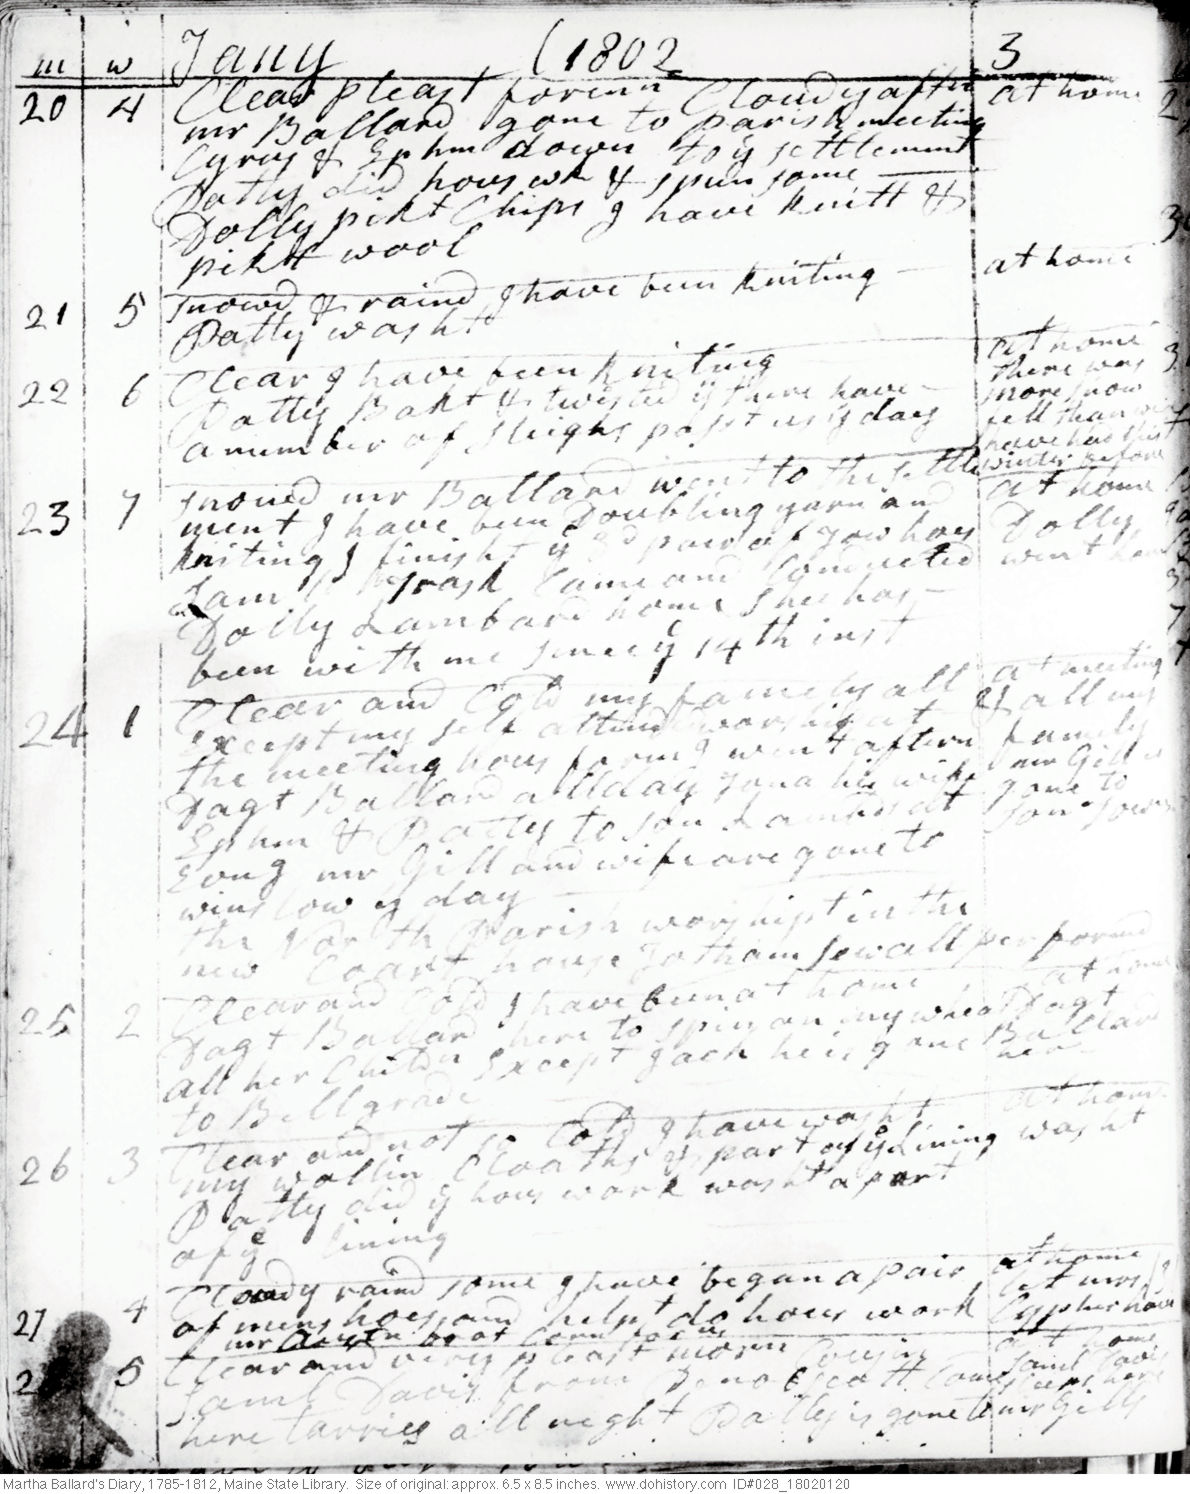 m w Jany (1802 3
20 4 Clear pleast forenn Cloudy aftn at home
mr Ballard gone to parish meeting
Cyrus & Ephm down to ye settlement
Patty did hous wk & spun some
Dolly pikt Chips I have knitt &
pikt wool
21 5 snowd & raind I have been kniting at home
Patty washt
22 6 Clear I have been kniting at home
Patty Bakt & twisted there have there was
a number of sleighs past us ye day more snow
fell than
have had this
winter before
23 7 snowed mr Ballard went to the settle at home
ment I have been Doubling yarn and Dolly
kniting I finisht ye 3d pair of hoes went
Sam Trask Came and Conducted
Dolly Lambard home shee has
been with me since ye 14th inst
24 1 Clear and Cold my famely all at meeting
Except my self attend worship at & all my
the meeting hous forenn I went aftern family
Dagt Ballard all day Jona his wife mr Gill is
Ephm & Patty to son Lambds at gone to
Evng mr Gill and wife are gone to son
winslow ye day
the North Parish worshipt in the
new Coart house Jotham Sewall performd
25 2 Clear and Cold I have been at home at home
Dagt Ballard here to spin on my wheal Dagt
all her Childn Except Jack he is gone Ballard
to Bellgrade her
26 3 Clear and not so Cold I have washt at home
my wollin Cloaths & part of ye Lining washt
Patty did ye hous work washt a part
of ye lining
27 4 Cloudy raind some I have began a pair at home
of mens hoes and helpt do hous work at mrs
mr
28 5 Clear and very pleast morn Cousin at home
Saml Davis from Come Saml Davis
here tarries all night Patty is gone to mr Gills sleeps here
Martha Ballard's Diary, 1785-1812, Maine State Library. Size of original: approx. 6.5 x 8.5 inches. www.dohistory.com ID#028_18020120